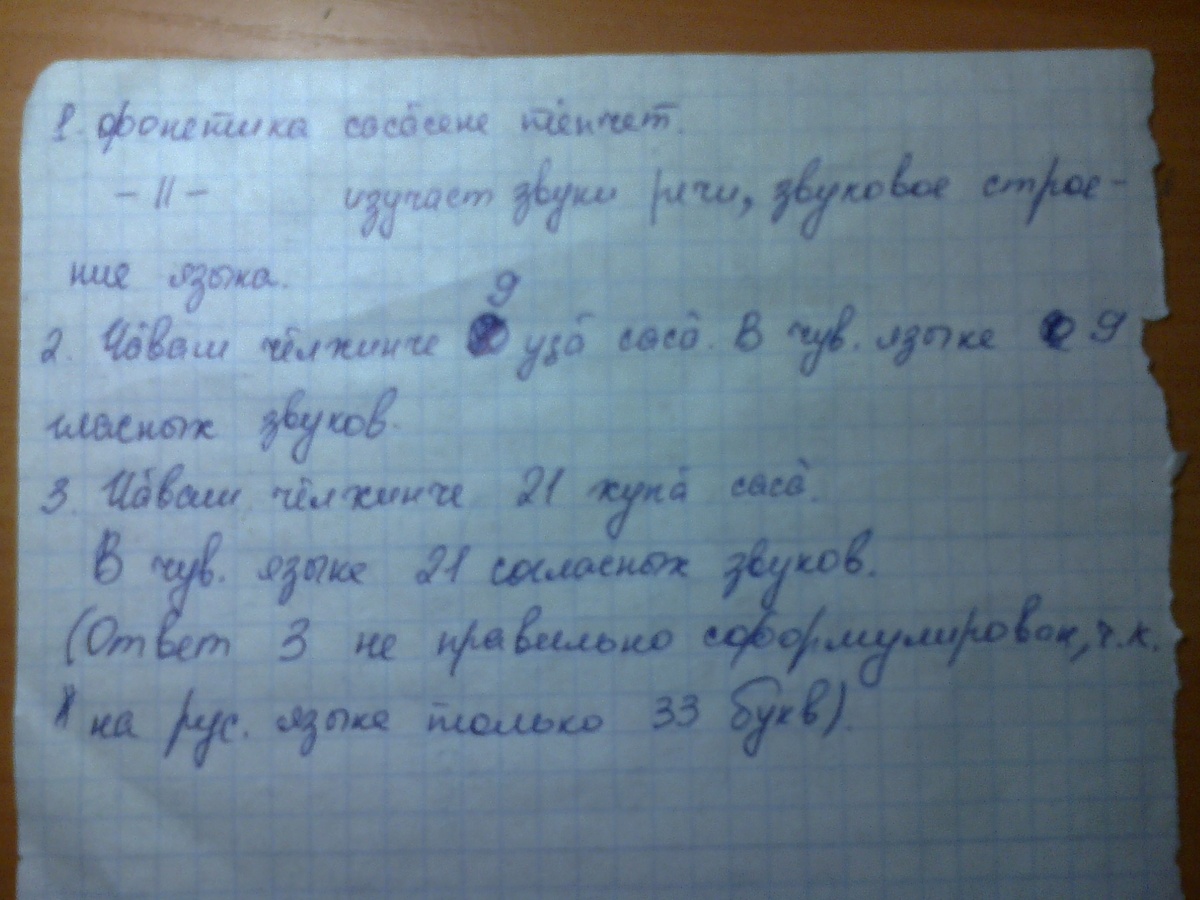 1. фонетика сасăсене тĕпчет.
– || – изучает звуки речи, звуковое строе-
ние языка.
9
2. Чăваш чĕлхинче уçă сасă. В чув. языке 9
гласных звуков.
3. Чăваш чĕлхинче 21 хупă сасă.
В чув. языке 21 согласных звуков.
(Ответ 3 не правильно сформулирован, т.к.
на рус. языке только 33 букв).